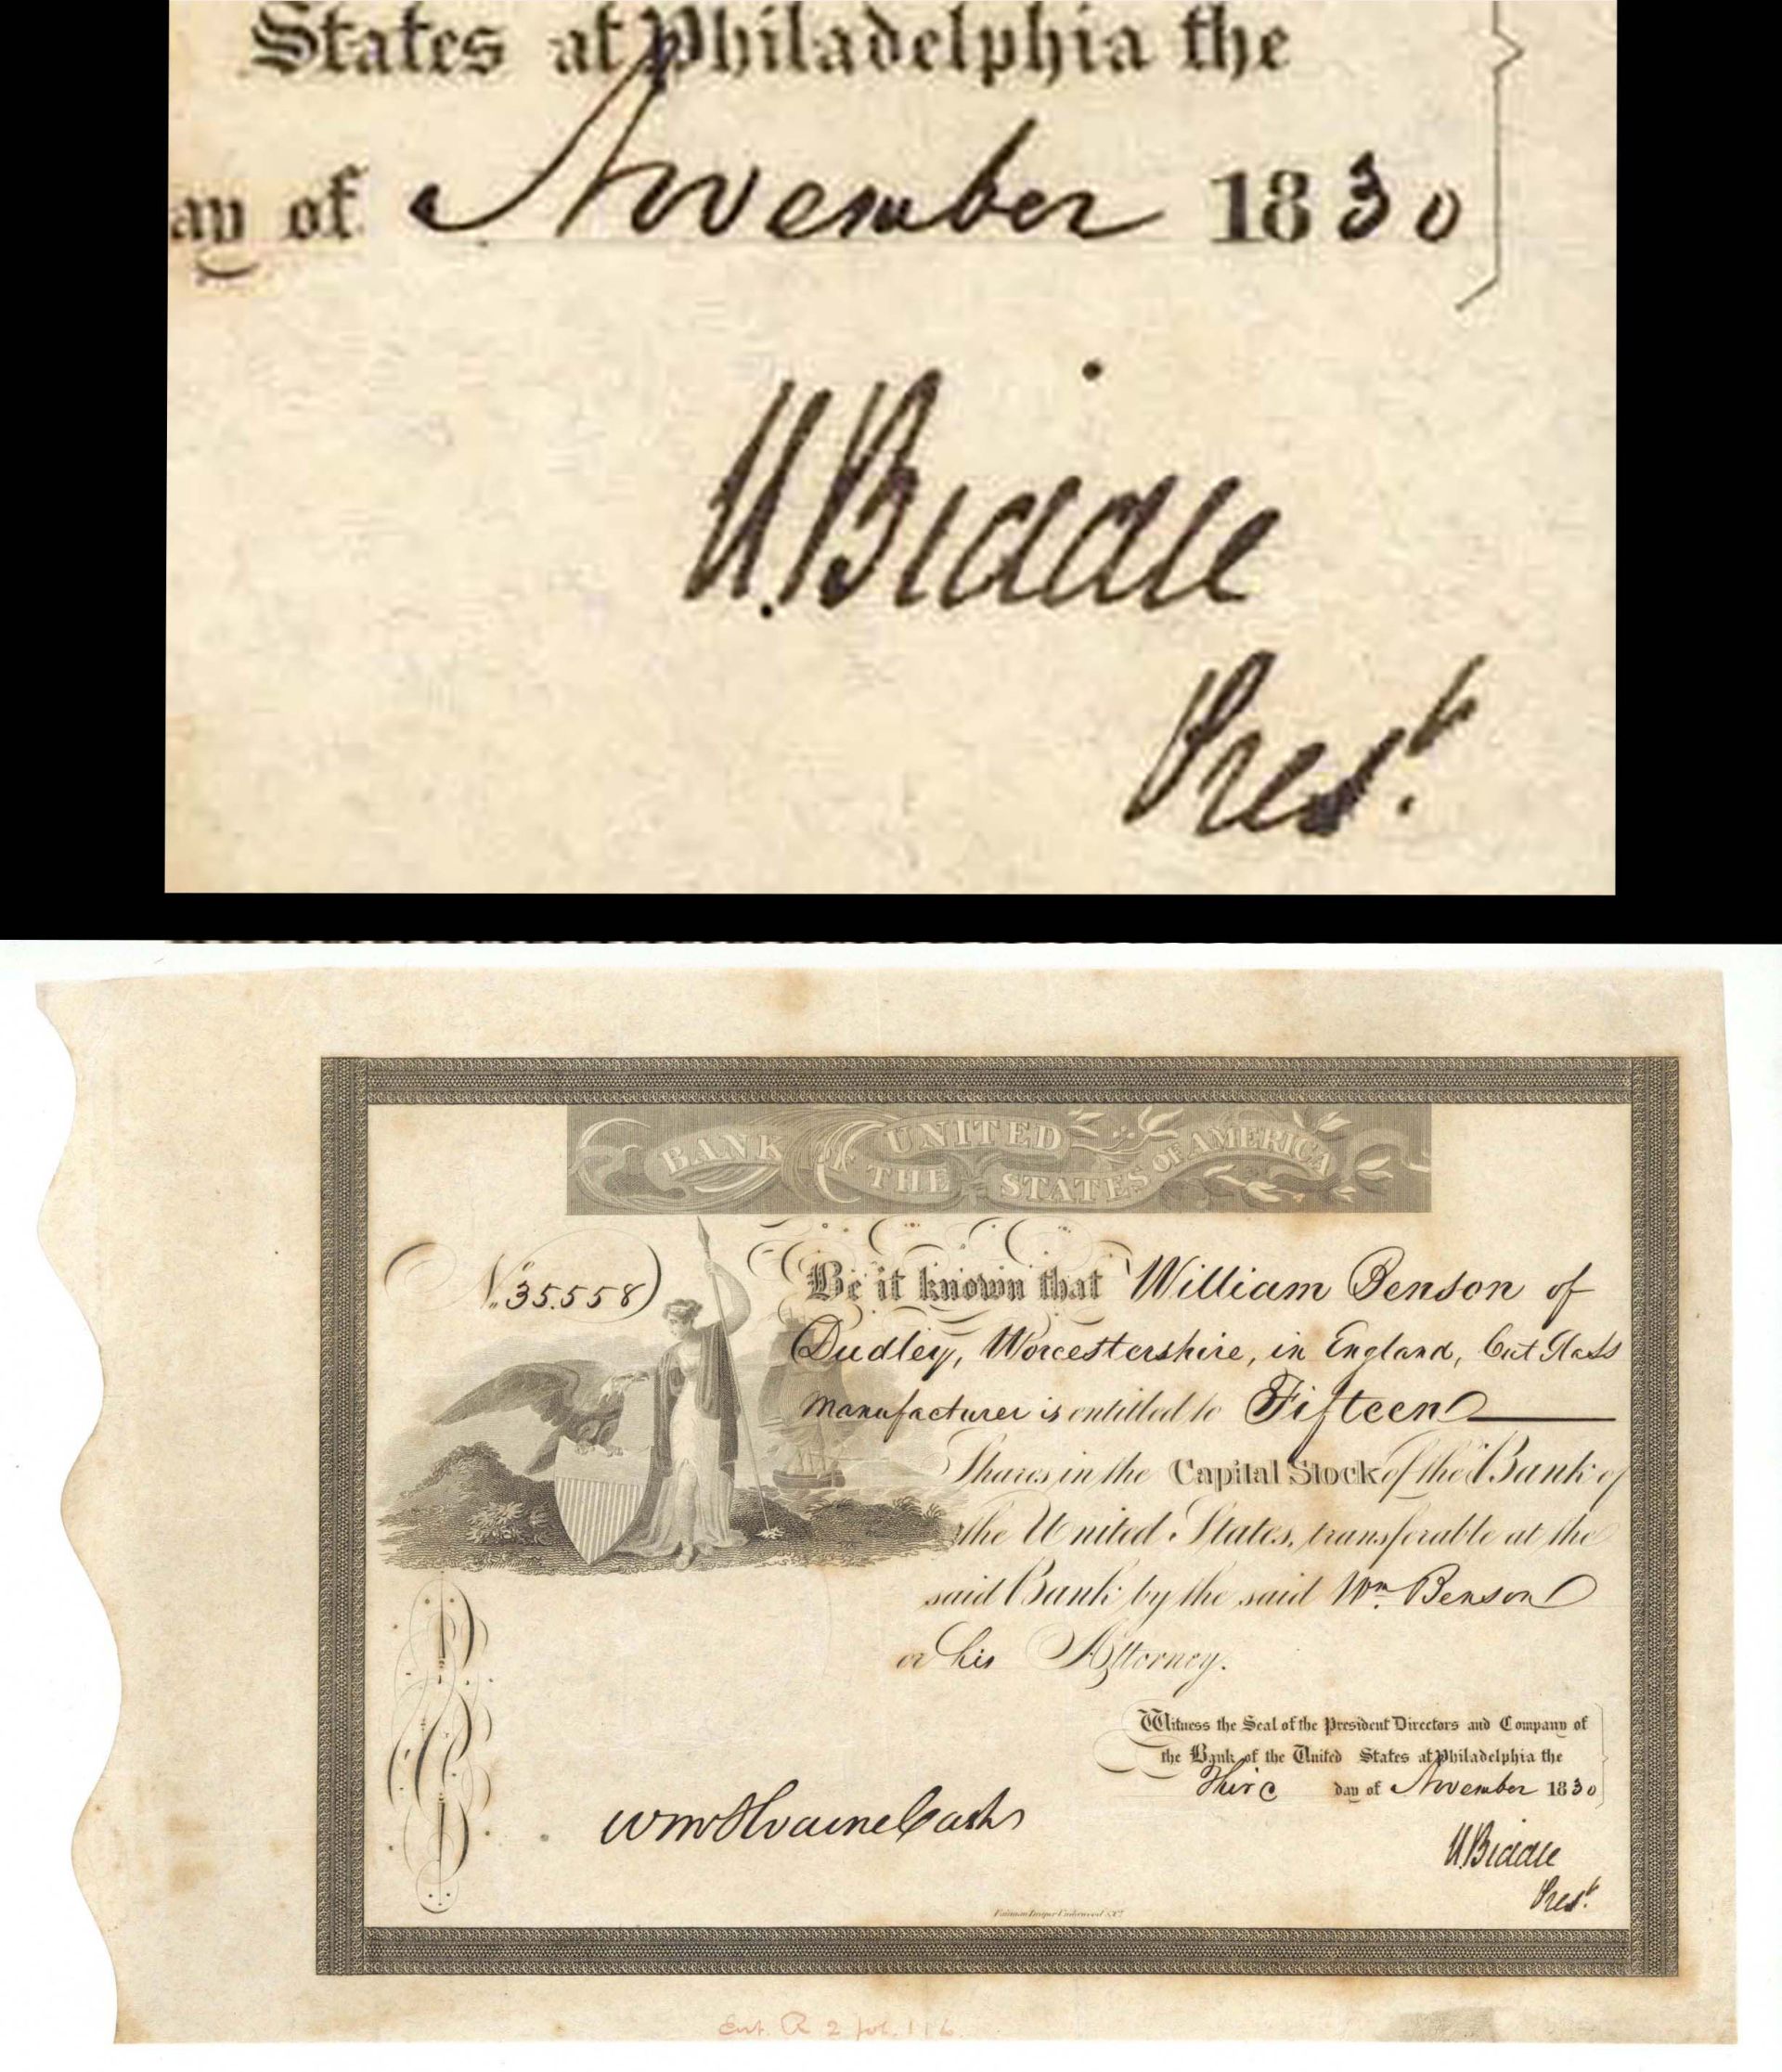 States at Philadelphia the
ay of November 1830
N. Biddle
Prest.
BANK OF THE UNITED STATES OF AMERICA
No. 35.558
Be it known that William Benson of
Dudley, Worcestershire, in England, Cut Glass
Manufacturer is entitled to Fifteen
Shares in the Capital Stock of the Bank of
the United States, transferable at the
said Bank by the said Wm. Benson
or his Attorney.
Witness the Seal of the President Directors and Company of
the Bank of the United States at Philadelphia the
Third day of November 1830
Cashr
N. Biddle
Prest.
Fairman Draper Underwood & Co.
Ent. R 2 fol. 116